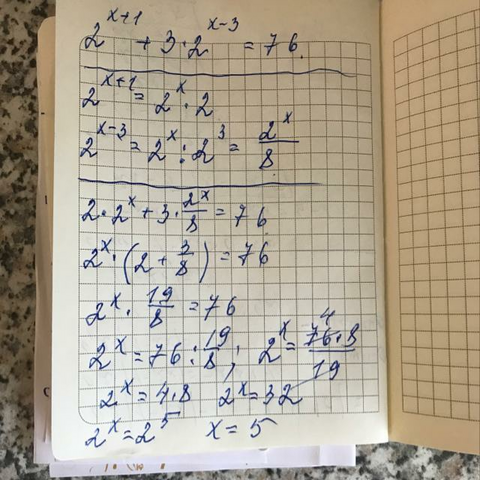 2^{x+1} + 3·2^{x-3} = 76.
2^{x+1} = 2^x · 2
2^{x-3} = 2^x : 2^3 = 2^x/8
2·2^x + 3·2^x/8 = 76
2^x·(2 + 3/8) = 76
2^x · 19/8 = 76
2^x = 76 : 19/8; 2^x = 76·8/19 4
2^x = 4·8 2^x = 32
2^x = 2^5 x = 5